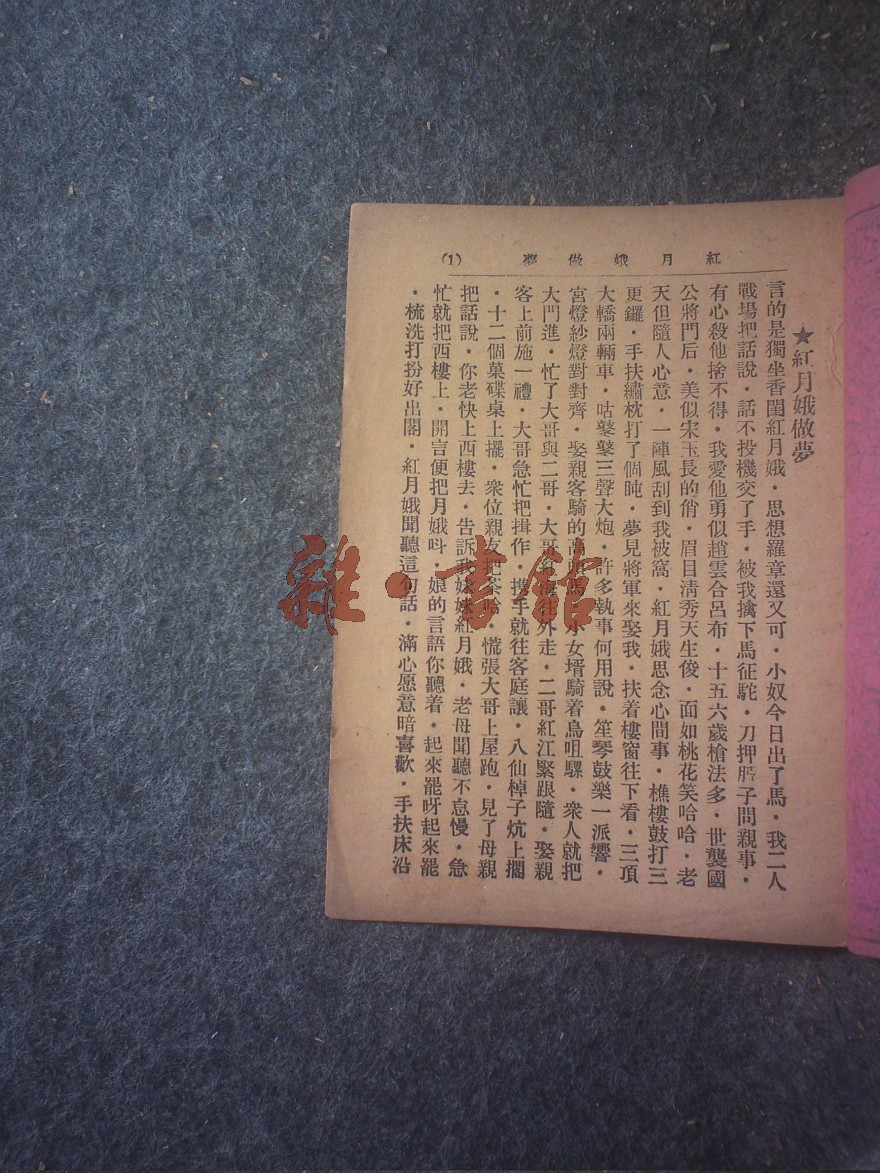 紅月娥做夢 (1)
★紅月娥做夢
言的是獨坐香閨紅月娥·思想羅章還又可·小奴今日出了馬·我二人
戰場把話說·話不投機交了手·被我擒下馬征駝·刀押脖子問親事·
有心殺他捨不得·我愛他勇似趙雲合呂布·十五六歲槍法多·世襲國
公將門后·美似宋玉長的俏·眉目清秀天生俊·面如桃花笑哈哈·老
天但隨人心意·一陣風刮到我被窩·紅月娥思念心間事·樵樓鼓打三
更鑼·手扶繡枕打了個盹·夢見將軍來娶我·扶着樓窗往下看·三頂
大轎兩輛車·咕鼕鼕三聲大炮·許多執事何用說·笙琴鼓樂一派響·
宮燈紗燈對對齊·娶親客騎的高頭馬·小女壻騎着烏咀騾·衆人就把
大門進·忙了大哥與二哥·大哥紅海往外走·二哥紅江緊跟隨·娶親
客上前施一禮·大哥急忙把揖作·携手就往客庭讓·八仙棹子炕上擱
·十二個菓碟桌上擺·衆位親友把茶喝·慌張大哥上屋跑·見了母親
把話說·你老快上西樓去·告訴我妹妹紅月娥·老母聞聽不怠慢·急
忙就把西樓上·開言便把月娥呌·娘的言語你聽着·起來罷呀起來罷
·梳洗打扮好出閣·紅月娥聞聽這句話·滿心愿意暗喜歡·手扶床沿
雜·書館